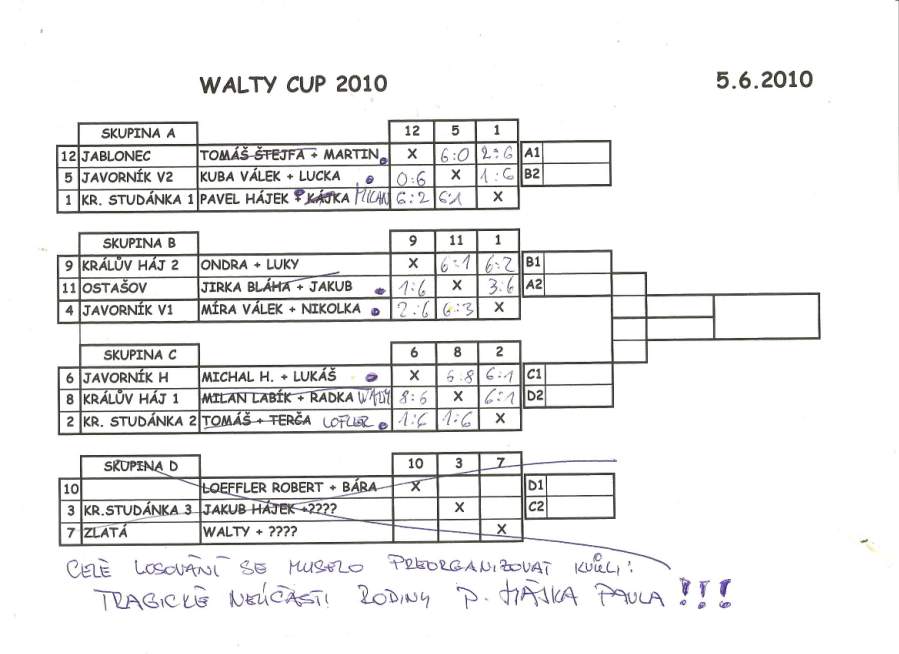 WALTY CUP 2010 5.6.2010
SKUPINA A 12 5 1
12 JABLONEC TOMÁŠ ŠTEJFA + MARTIN X 6:0 2:6 A1
5 JAVORNÍK V2 KUBA VÁLEK + LUCKA 0:6 X 1:6 B2
1 KR. STUDÁNKA 1 PAVEL HÁJEK + KÁJKA MILAN 6:2 6:1 X
SKUPINA B 9 11 1
9 KRÁLŮV HÁJ 2 ONDRA + LUKY X 6:1 6:2 B1
11 OSTAŠOV JIRKA BLÁHA + JAKUB 1:6 X 3:6 A2
4 JAVORNÍK V1 MÍRA VÁLEK + NIKOLKA 2:6 6:3 X
SKUPINA C 6 8 2
6 JAVORNÍK H MICHAL H. + LUKÁŠ X 6:8 6:1 C1
8 KRÁLŮV HÁJ 1 MILAN LABÍK + RADKA WALTY 8:6 X 6:1 D2
2 KR. STUDÁNKA 2 TOMÁŠ + TERČA LOFLER 1:6 1:6 X
SKUPINA D 10 3 7
10 LOEFFLER ROBERT + BÁRA X D1
3 KR.STUDÁNKA 3 JAKUB HÁJEK +???? X C2
7 ZLATÁ WALTY + ???? X
CELÉ LOSOVÁNÍ SE MUSELO PŘEORGANIZOVAT KVŮLI:
TRAGICKÉ NEÚČASTI RODINY P. HÁJKA PAVLA !!!